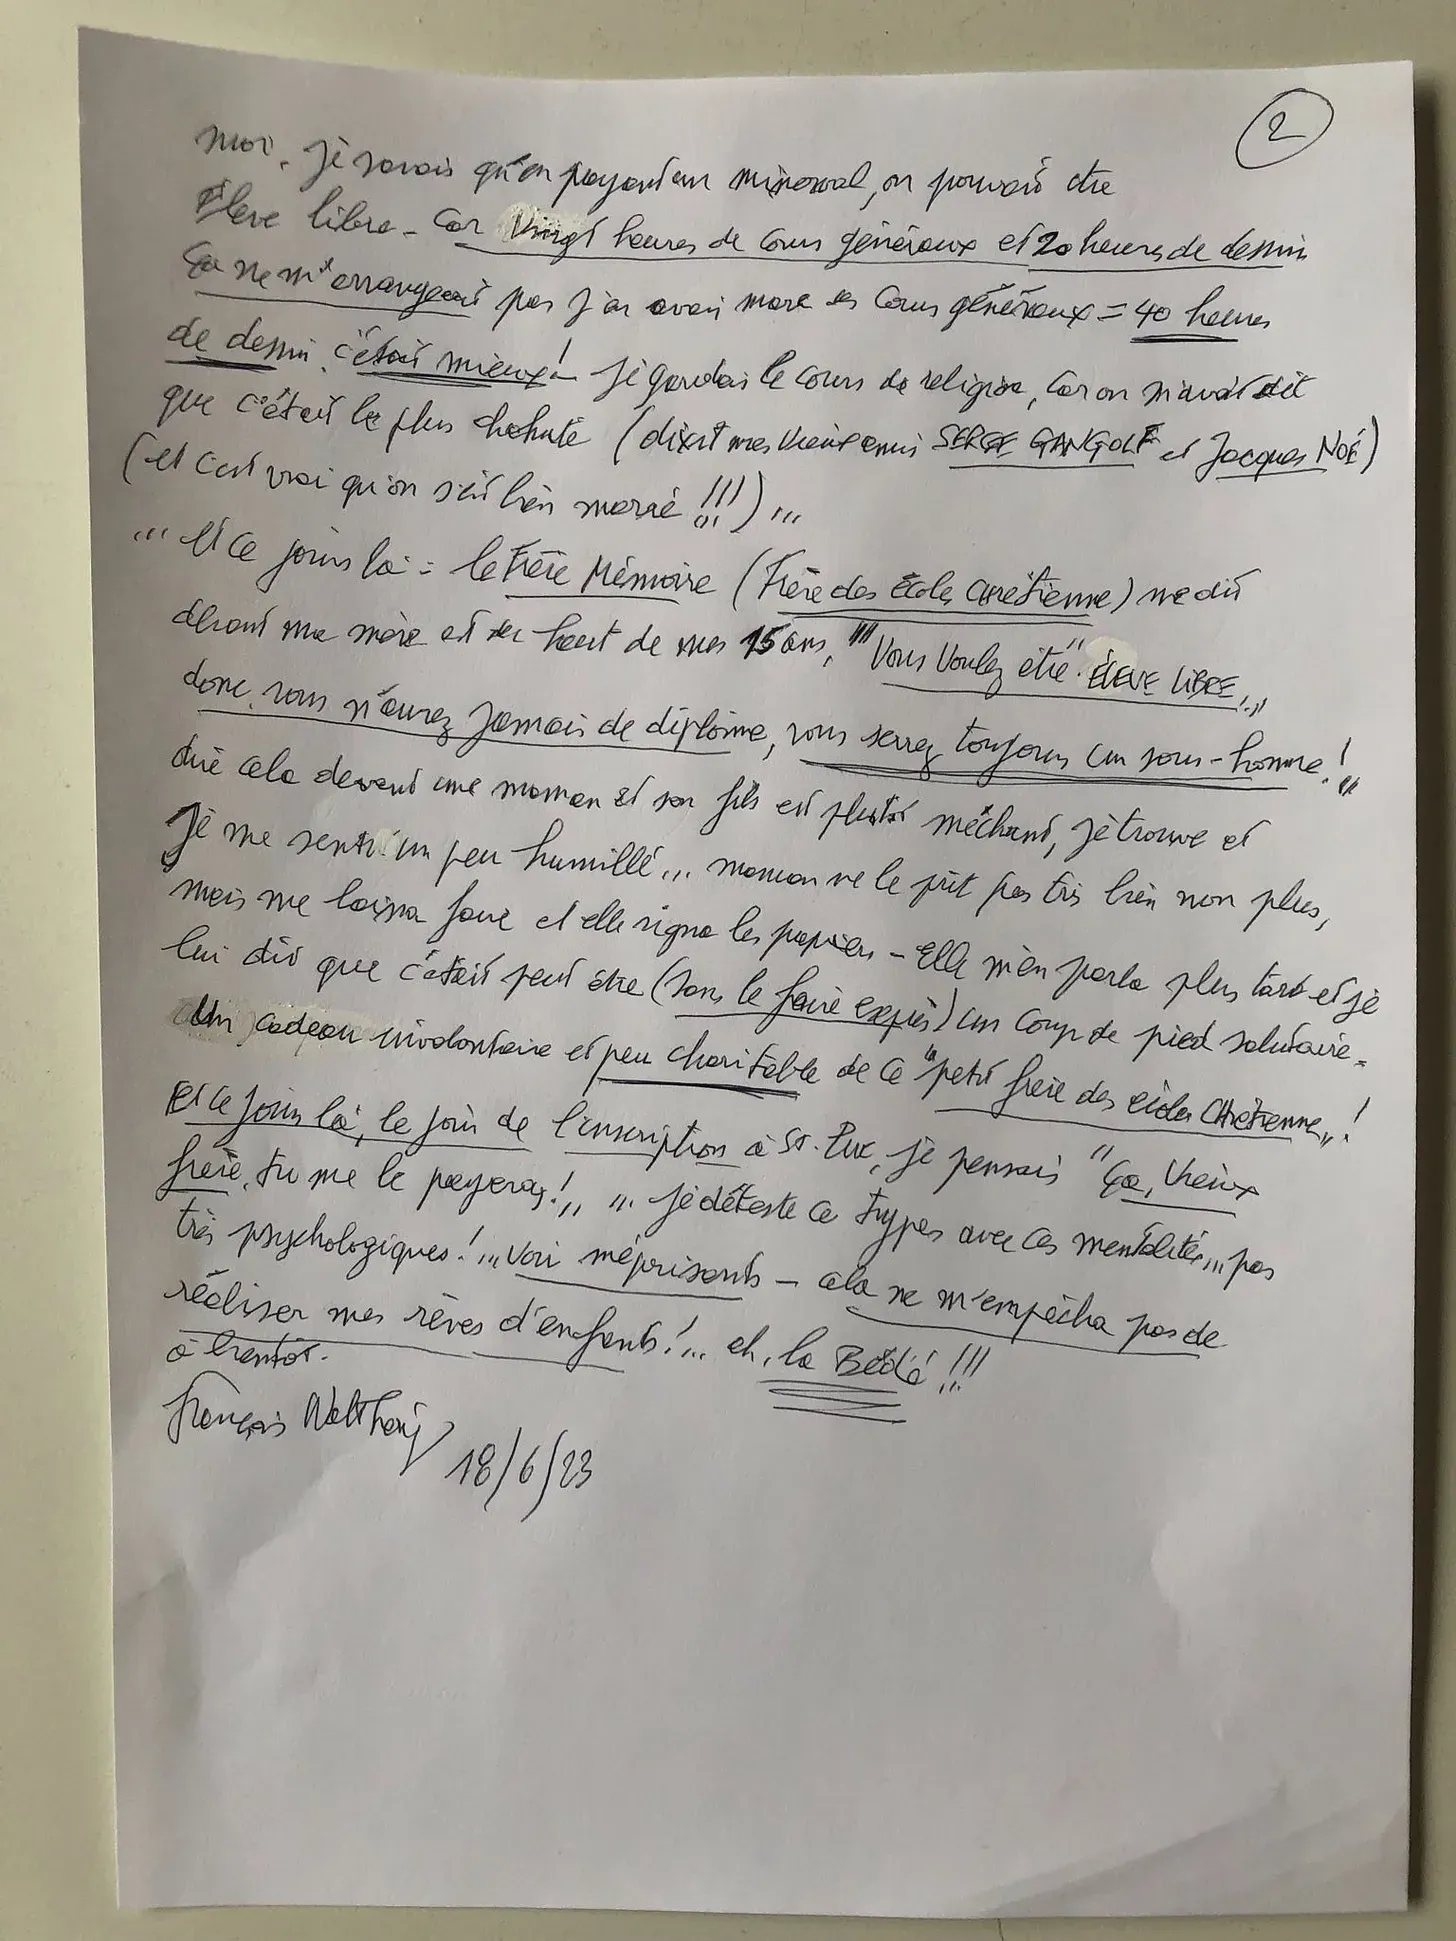 2
moi. Je savais qu'en payant un minerval, on pouvait être
élève libre - Car Vingt heures de Cours généraux et 20 heures de dessin
ça ne m'arrangeait pas j'en avais marre des Cours généraux = 40 heures
de dessin, c'était mieux! - Je gardais le cours de religion, car on m'avait dit
que c'était le plus chahuté (dixit mes vieux amis SERGE GANGOLF et Jacques NOÉ)
(et c'est vrai qu'on s'est bien marré !!!) ...
... Et ce jour là = le Frère Mémoire (Frère des École Chrétienne) me dit
devant ma mère et du haut de mes 15 ans, "Vous Voulez être" ÉLEVE LIBRE...
donc, vous n'aurez jamais de diplôme, vous serrez toujours un sous-homme!"
dire cela devant une maman et son fils est plutôt méchant, je trouve et
je me senti un peu humillé... maman ne le prit pas très bien non plus,
mais me laissa faire et elle signa les papiers - Elle m'en parla plus tard et je
lui dis que c'était peut être (sans le faire exprès) un coup de pied salutaire -
Un cadeau involontaire et peu charitable de ce "petit frère des écoles Chrétienne"!
Et ce jour là, le jour de l'inscription à St. Luc, je pensais "ça, Vieux
frère, tu me le payeras!" ... je déteste ce types avec ces mentalités... pas
très psychologiques! ... Voir méprisants - cela ne m'empêcha pas de
réaliser mes rêves d'enfants! ... eh, la Bédé !!!
à bientôt.
François Walthéry
18/6/23